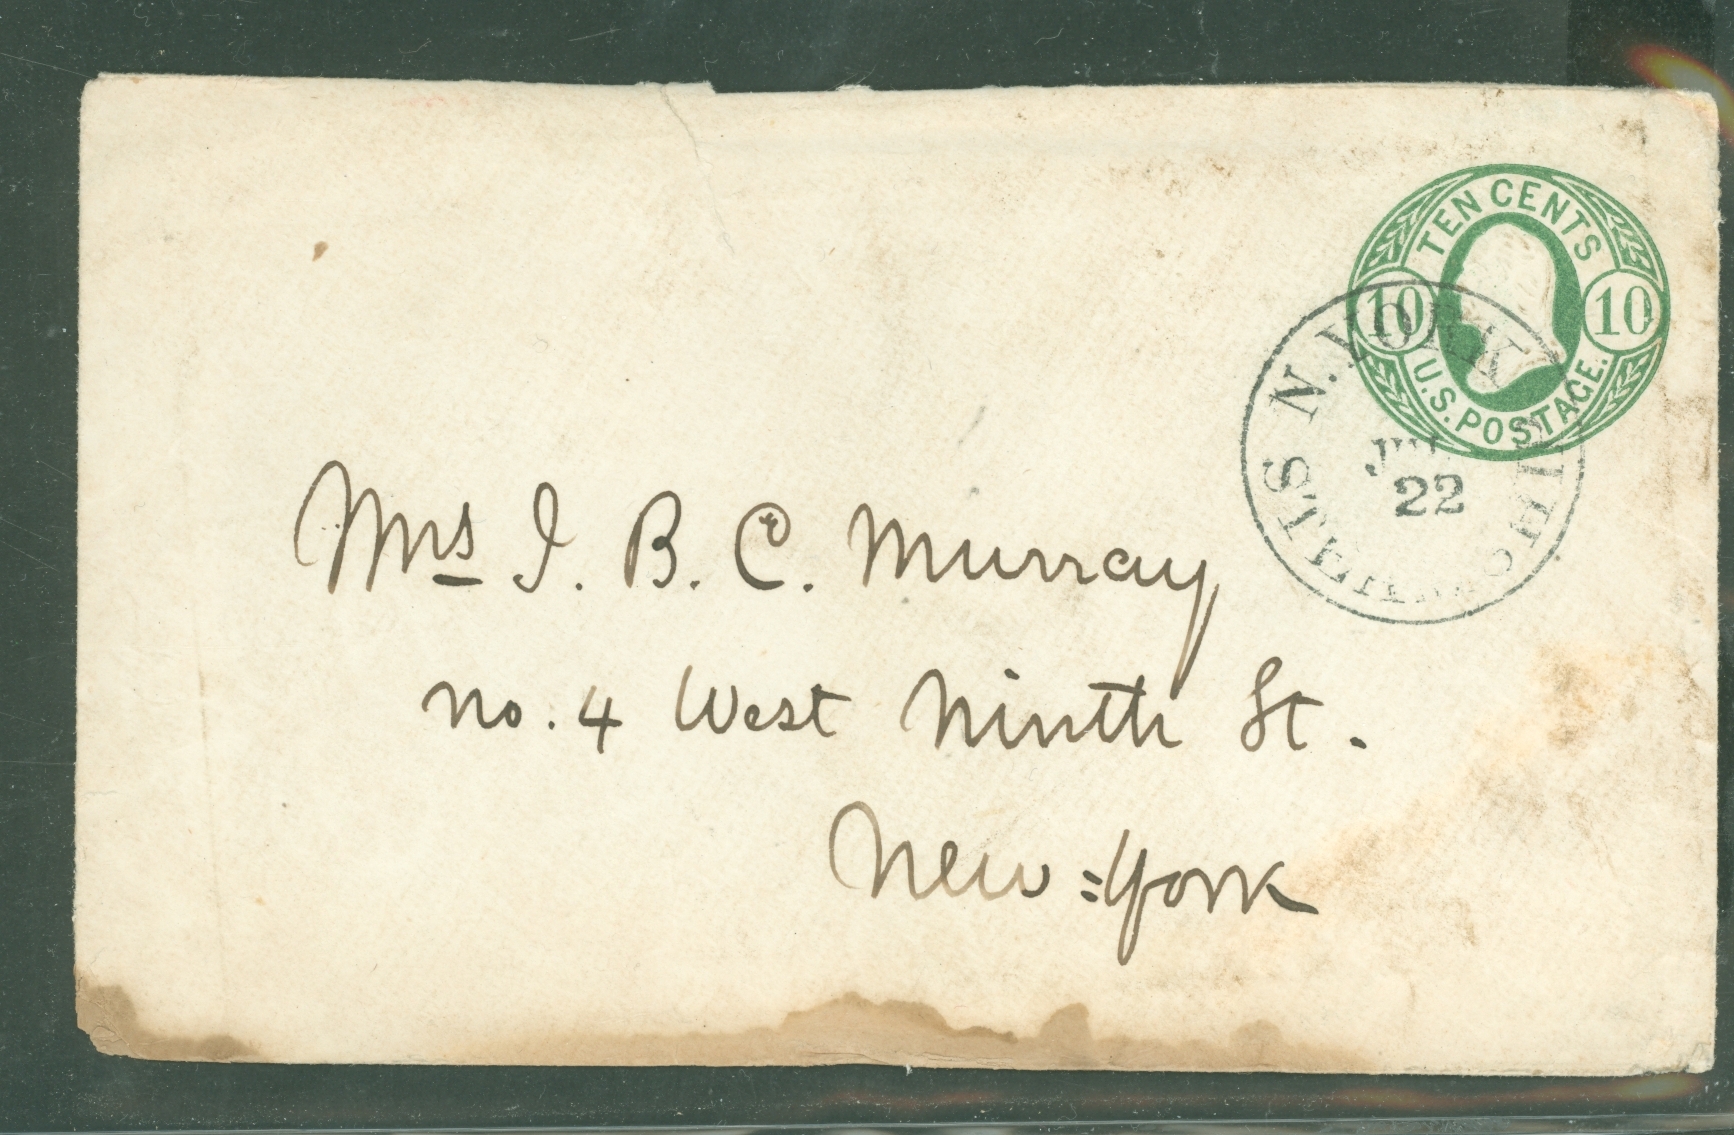 TEN CENTS
10 10
U.S. POSTAGE.
N. YORK
JUL
22
Mrs J. B. C. Murray
No. 4 West Ninth St.
New=York